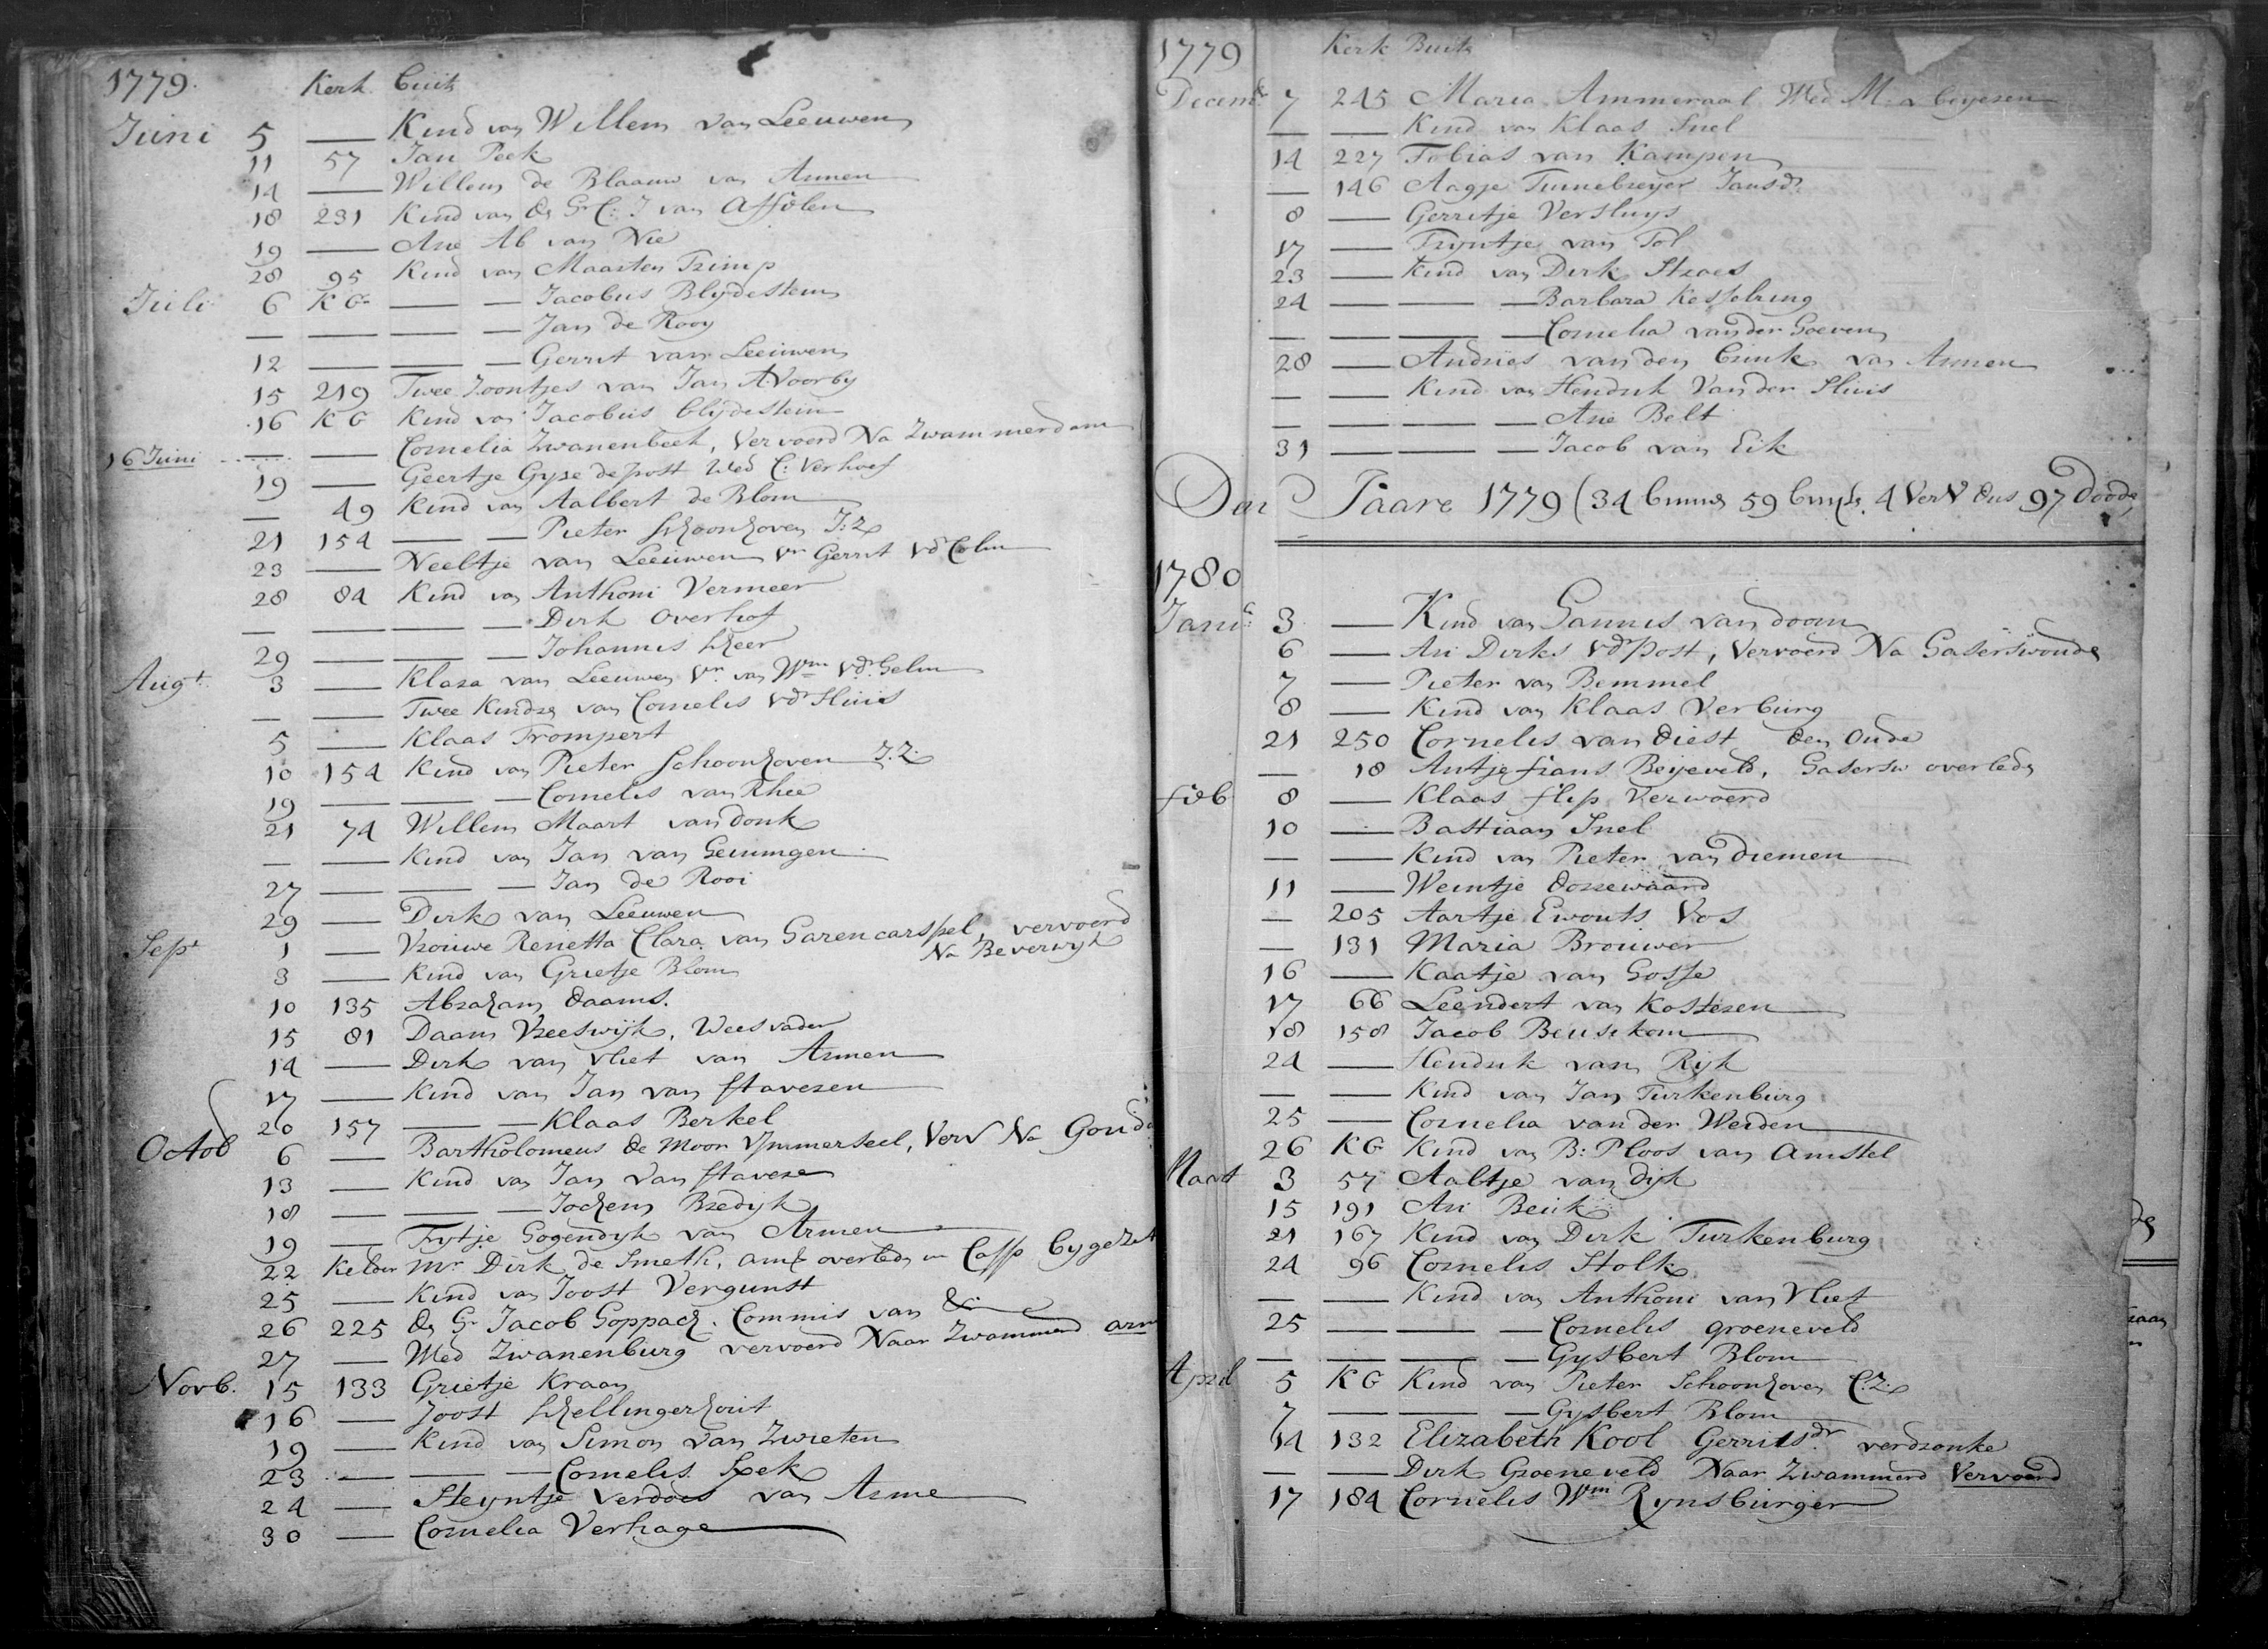 1779. Kerk. buits
Juni 5 — Kind van Willem van Leeuwen
11 57 Jan Peek
14 — Willem de Blaauw van Armen
18 231 Kind van de Hr C: J van Assolen
19 — Arie Ab van Nie
28 95 Kind van Maarten Trimp
Juli 6 KG — — Jacobus Blijdestein
— — — — Jan de Rooy
12 — — — Gerrit van Leeuwen
15 219 Twee Zoontjes van Jan A. Voorby
16 KG Kind van Jacobus blijdestein
16 Juni — — Cornelia Zwanenbeek, Vervoerd Na Zwammerdam
19 — Geertje Gyse de post Wed C: Verhoef
— 49 Kind van Aalbert de Blom
21 154 — — Pieter Schoonhoven J:Z
23 — Neeltje van Leeuwen Vr Gerrit Vd Colm
28 84 Kind van Anthoni Vermeer
— — — — Dirk Overhof
29 — — — Johannis Scheer
Augt. 3 — Klara van Leeuwen Vr. van Wm Vdr. Helm
— — Twee Kindrs van Cornelis Vdr Sluis
5 — Klaas Trompert
10 154 Kind van Pieter Schoonhoven J.Z.
19 — — — Cornelis van Rhee
21 74 Willem Maart van donk
— — Kind van Jan van Geuningen
27 — — — Jan de Rooi
29 — Dirk van Leeuwen
Sept 1 — Vrouwe Renetta Clara van Harencarspel, vervoerd
Na Beverwyk
3 — Kind van Grietje Blom
10 135 Abraham daams.
15 81 Daam Vreeswijk, Weesvader
14 — Dirk van Vliet van Armen
17 — Kind van Jan van Staveren
20 157 — — Klaas Berkel
Octob 6 — Bartholomeus de Moor Ymmerseel, Verv Na Gouda
13 — Kind van Jan van Stavere
18 — — — Jochem Bredijk
19 — Fytje Hogendyk van Armen
22 Kelder Mr Dirk de Smeth, amst overleden in Cass bygezet
25 — Kind van Joost Vergunst
26 225 de Hr Jacob Hoppach. Commis van &c
27 — Wed Zwanenburg vervoerd Naar Zwammerd arm
Novb. 15 133 Grietje Kraan
16 — Joost Schellingerhout
19 — Kind van Simon van Zwieten
23 — — — Cornelis Spek
24 — Steyntje Verdoes van Arme
30 — Cornelia Verhage
1779 Kerk Buits
Decemr 7 245 Maria Ammeraal Wed M: beyesen
— — Kind van Klaas Snel
14 227 Tobias van Kampen
— 146 Aagje Tuinebreyer Jansdr.
8 — Gerritje Versluys
17 — Tryntje van Tol
23 — Kind van Dirk Straes
24 — — — Barbara Kesselring
— — — — Cornelia van der Goeven
28 — Andries van den brink van Armen
— — Kind van Hendrik Van der Sluis
— — — — Arie Belt
31 — — — Jacob van Eik
Den Jaare 1779 (34 binne 59 buyte. 4 Verv dus 97 doode
1780
Janr: 3 — Kind van Hannis van doorn
6 — Ari Dirks Vdr post, Vervoerd Na Haserswoude
7 — Pieter van Bemmel
8 — Kind van Klaas Verburg
21 250 Cornelis van diest den Oude
— 18 Antje frans Beijeveld, Hasersw overleden
feb 8 — Klaas flip Verwoerd
10 — Bastiaan Snel
— — Kind van Pieter van diemen
11 — Weintje dorrewaard
— 205 Aartje Ewouts Vos
— 131 Maria Brouwer
16 — Kaatje van Gosse
17 66 Leendert van Kosteren
18 158 Jacob Beusekom
24 — Hendrik van Rijk
— — Kind van Jan Turkenburg
25 — Cornelia van der Weiden
26 KG Kind van B: Ploos van Amstel
Maart 3 57 Aaltje van dijk
15 191 Ari Beuk
21 167 Kind van Dirk Turkenburg
24 96 Cornelis Stolk
— — Kind van Anthoni van Vliet
25 — — — Cornelis groeneveld
— — — — Gysbert Blom
April 5 KG Kind van Pieter Schoonhoven C:Z:
7 — — — Gysbert Blom
14 132 Elizabeth Kool Gerritsdr. verdronke
— — Dirk Groeneveld Naar Zwammerd Vervoerd
17 184 Cornelis Wm Rynsburger